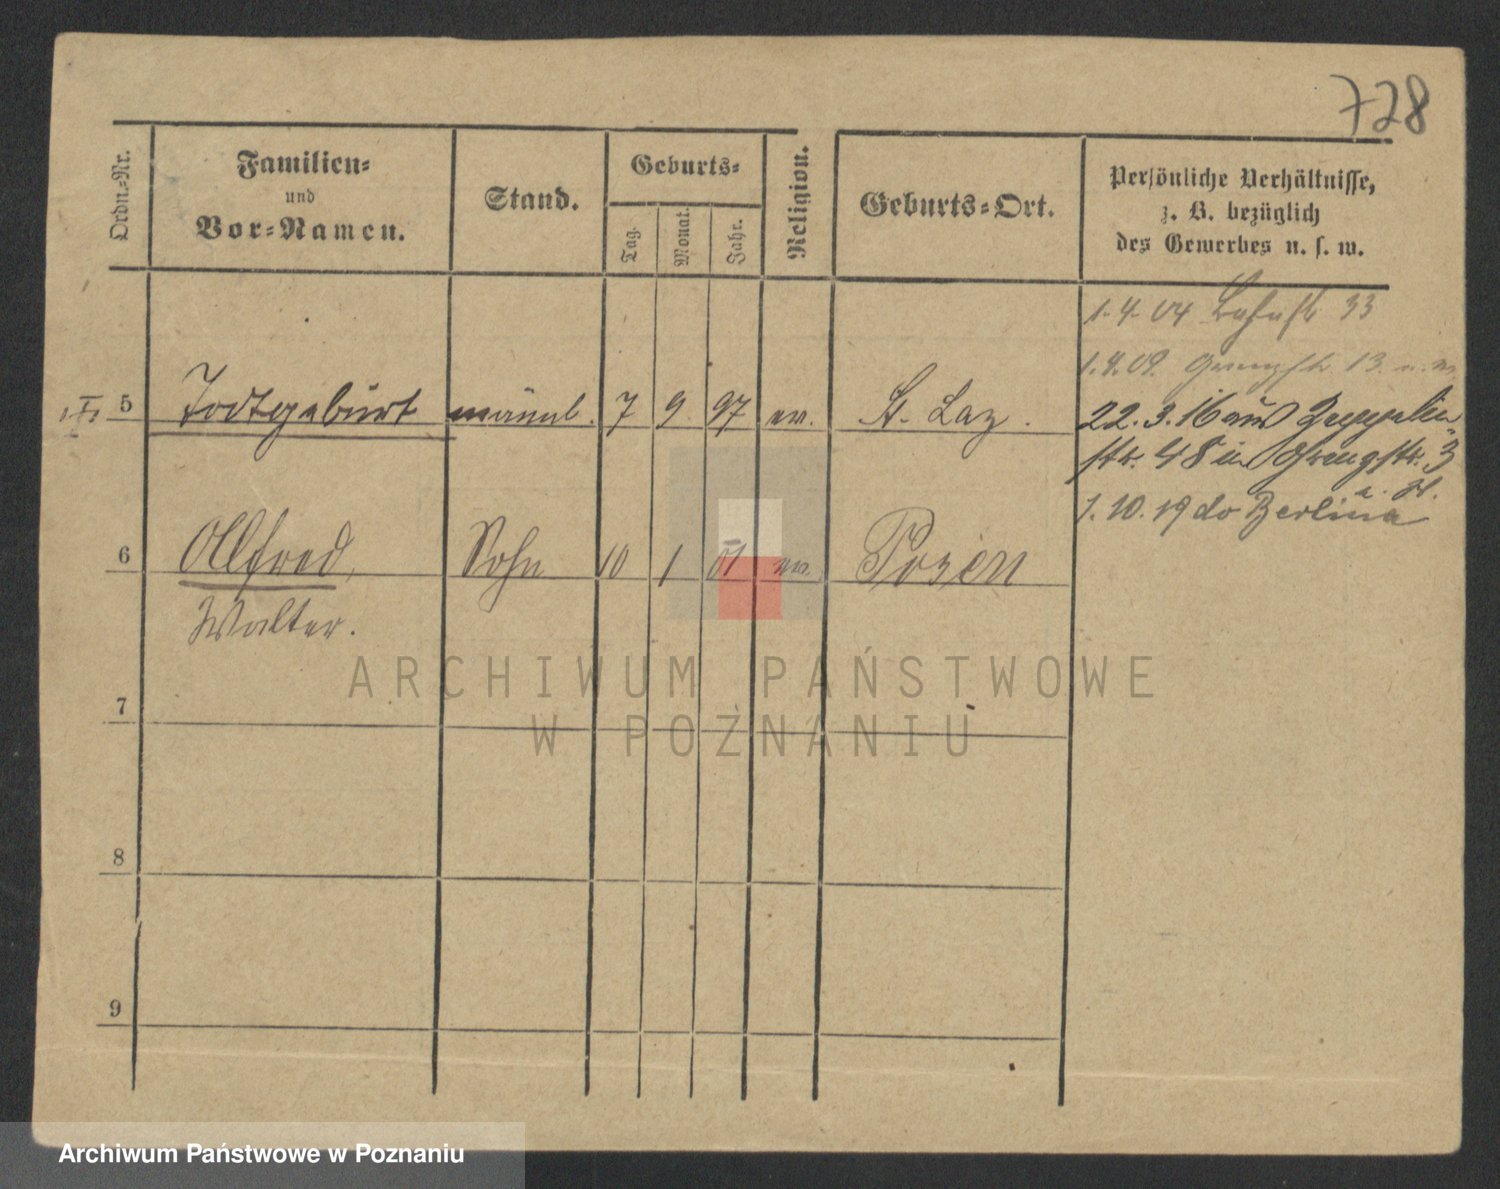 728
Ordn.-Nr.
Familien-
und
Vor-Namen.
Stand.
Geburts-
Tag.
Monat.
Jahr.
Religion.
Geburts-Ort.
Persönliche Verhältnisse,
z. B. bezüglich
des Gewerbes u. s. w.
1.4.04 33
1.4.09. 13.
5 Todtgeburt männl. 7 9 97 ev. St. Laz.
22.3.16 aus Zeppelin-
str. 48 in 3
1.10.19 do Berlin
6 Alfred, Sohn 10 1 01 ev. Posen
Walter.
7
8
9
ARCHIWUM PAŃSTWOWE
W POZNANIU
Archiwum Państwowe w Poznaniu